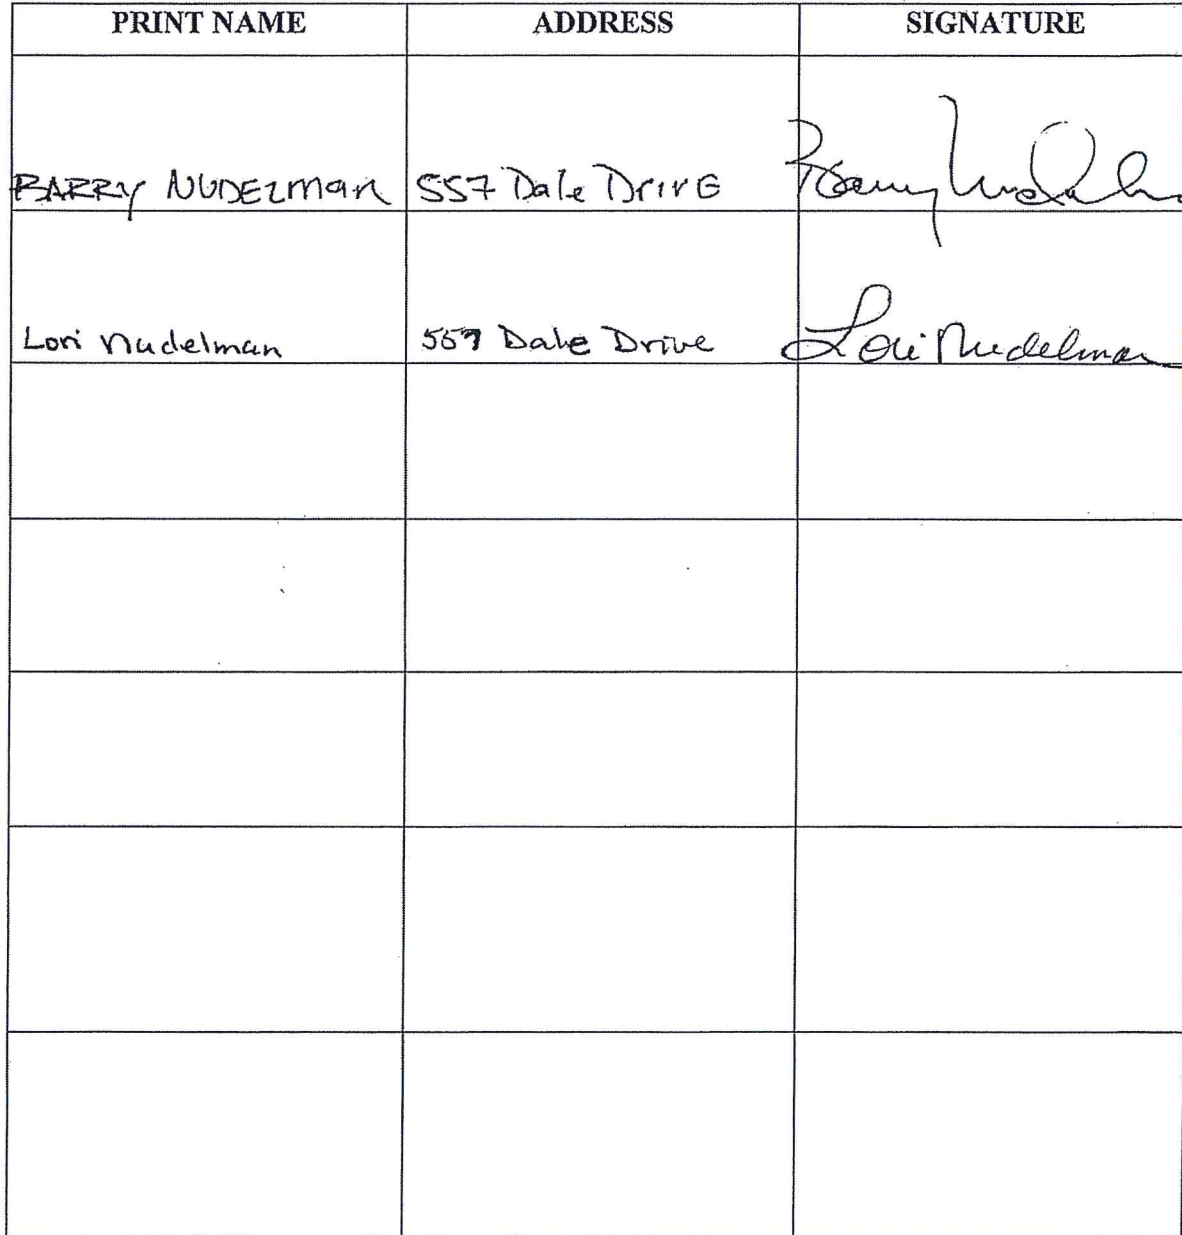 PRINT NAME ADDRESS SIGNATURE
BARRY NUDELMAN 557 Dale DrivE Barry
Lori Nudelman 557 Dale Drive Lori Nudelman